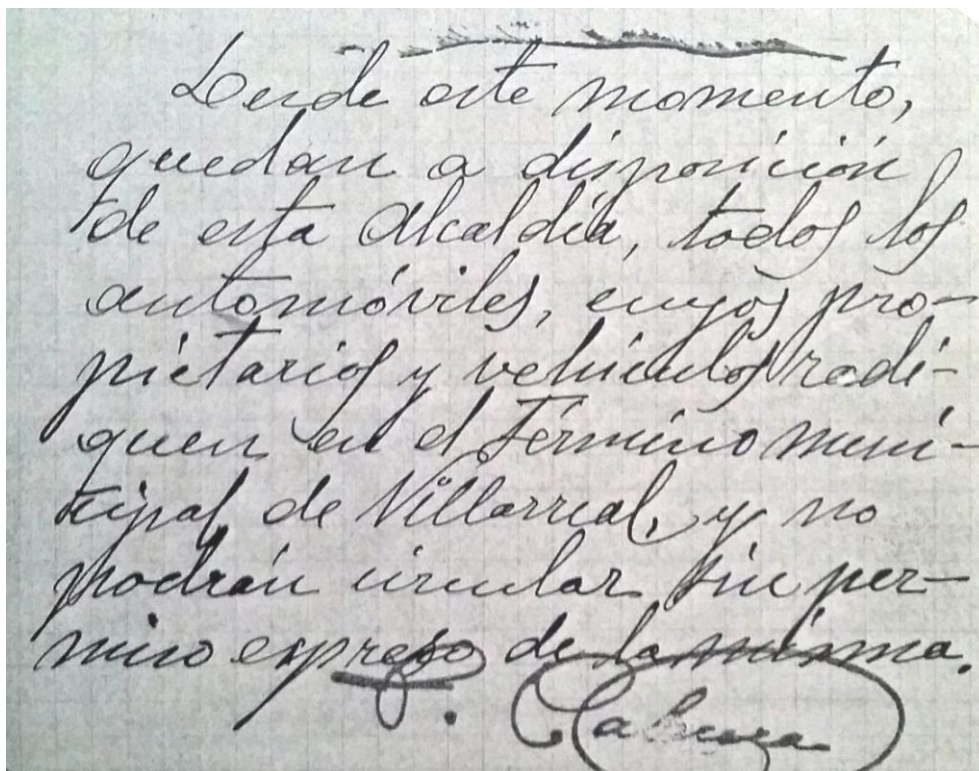 Desde este momento,
quedan a disposición
de esta Alcaldía, todos los
automóviles, cuyos pro-
pietarios y vehiculos radi-
quen en el Término muni-
cipal de Villarreal, y no
podrán circular sin per-
miso expreso de la misma.
Cabrera